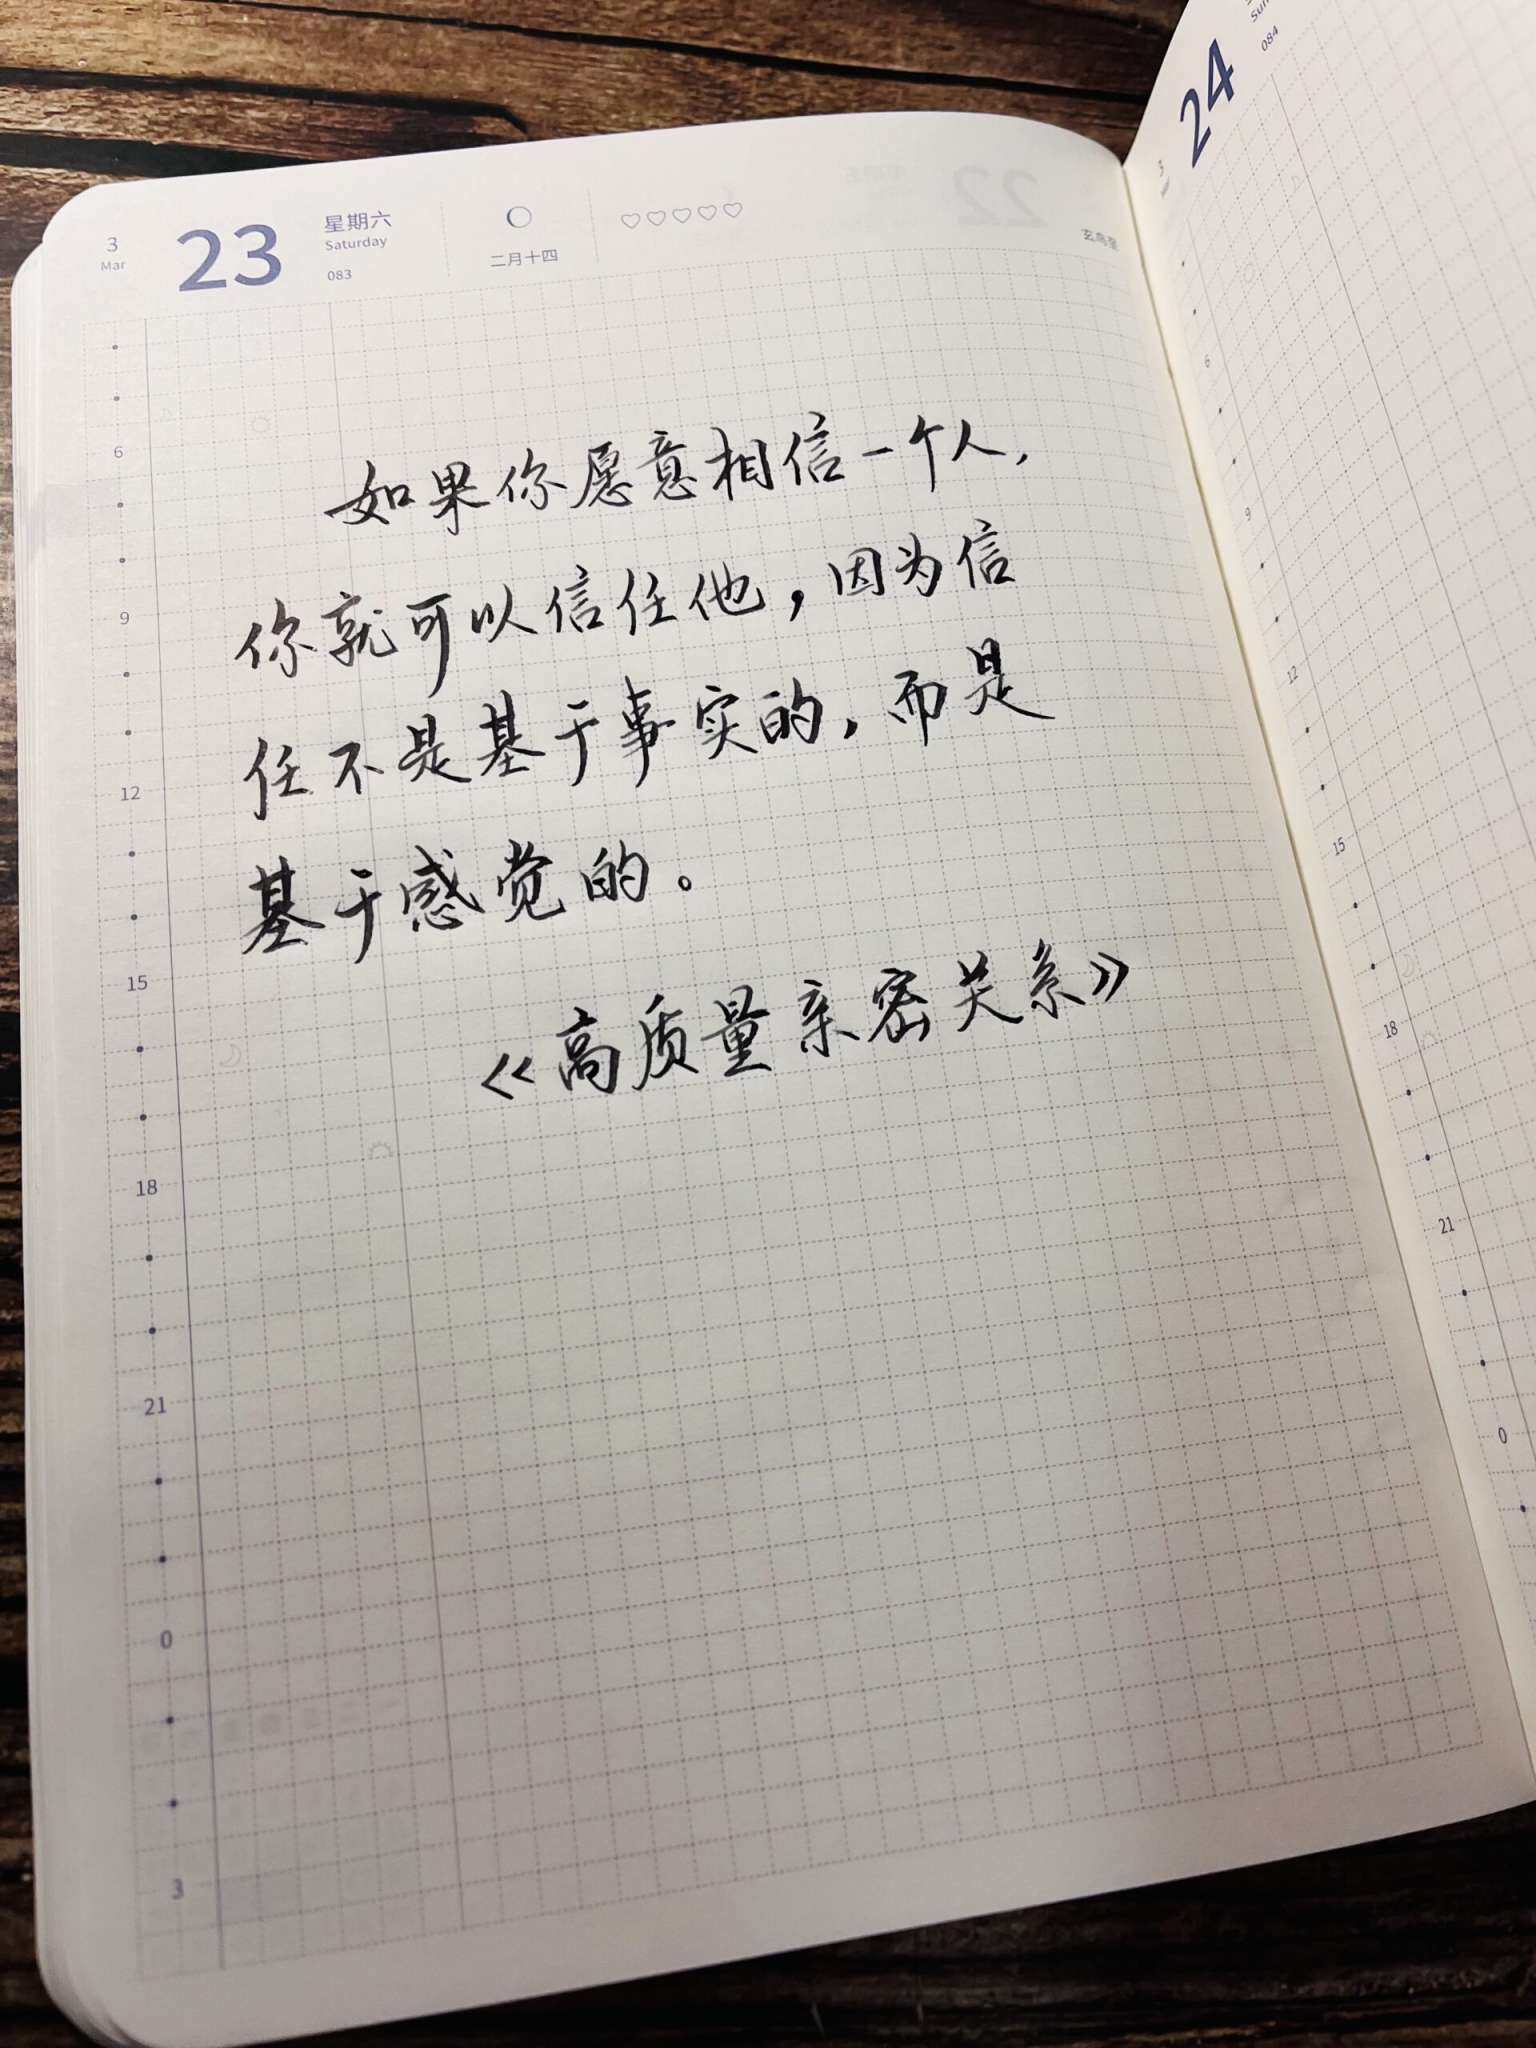 3
Mar
23
星期六
Saturday
083
二月十四
如果你愿意相信一个人,
你就可以信任他,因为信
任不是基于事实的,而是
基于感觉的。
《高质量亲密关系》
6
9
12
15
18
21
0
3
24
084
3
6
9
12
15
18
21
0